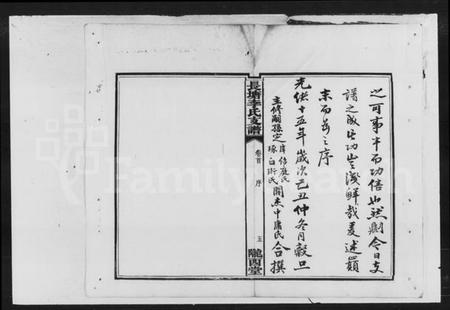 之可事半而功倍也然則今日支
譜之成其功豈淺鮮哉爰述顛
末而為之序
光緒十五年歲次己丑仲冬月穀旦
主修嗣孫定庠 倍庭氏
琢白 衍氏 開杰中庸氏 合撰
長塘李氏支譜
卷首 序
五
隴西堂
FamilySearch